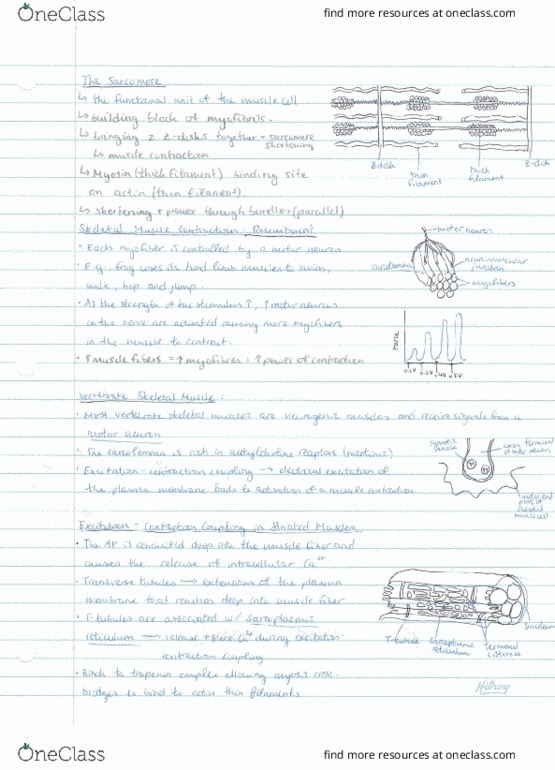 OneClass
find more resources at oneclass.com
The Sarcomere
↳ the functional unit of the muscle cell
↳ building block of myofibrils.
↳ bringing 2 Z-disks together = sarcomere shortening
↳ muscle contraction
↳ Myosin (thick filament) binding site
on actin (thin filament).
↳ shortening + power through bundles (parallel)
Z disk
thin filament
thick filament
Z-disk
Skeletal Muscle Contraction: Recruitment
• Each myofiber is controlled by a motor neuron
• E.g. frog uses its hind limb muscles to swim,
walk, hop and jump.
• As the strength of the stimulus ↑, ↑ motor neurons
in the nerve are activated causing more myofibers
in the muscle to contract.
• ↑ muscle fibers = ↑ myofibres = ↑ power of contraction
motor neuron
sarcolemma
neuromuscular junction
myofibers
Force
Vertebrate Skeletal Muscle:
• Most vertebrate skeletal muscles are neurogenic muscles and receive signals from a
motor neuron
• The sarcolemma is rich in acetylcholine receptors (nicotinic)
• Excitation-contraction coupling → electrical excitation of
the plasma membrane leads to activation of a muscle contraction
synaptic vesicle
axon terminal
motor end plate of skeletal muscle cell
Excitation - Contraction Coupling in Striated Muscles
• The AP is conducted deep into the muscle fiber and
causes the release of intracellular Ca²⁺
• Transverse tubules → extensions of the plasma
membrane that reaches deep into muscle fiber
• T-tubules are associated w/ sarcoplasmic
reticulum → release + store Ca²⁺ during excitation-
contraction coupling
• Binds to troponin complex allowing myosin cross-
bridges to bind to actin thin filaments.
T-tubule
Sarcoplasmic reticulum
terminal cisternae
Hilroy
OneClass
find more resources at oneclass.com